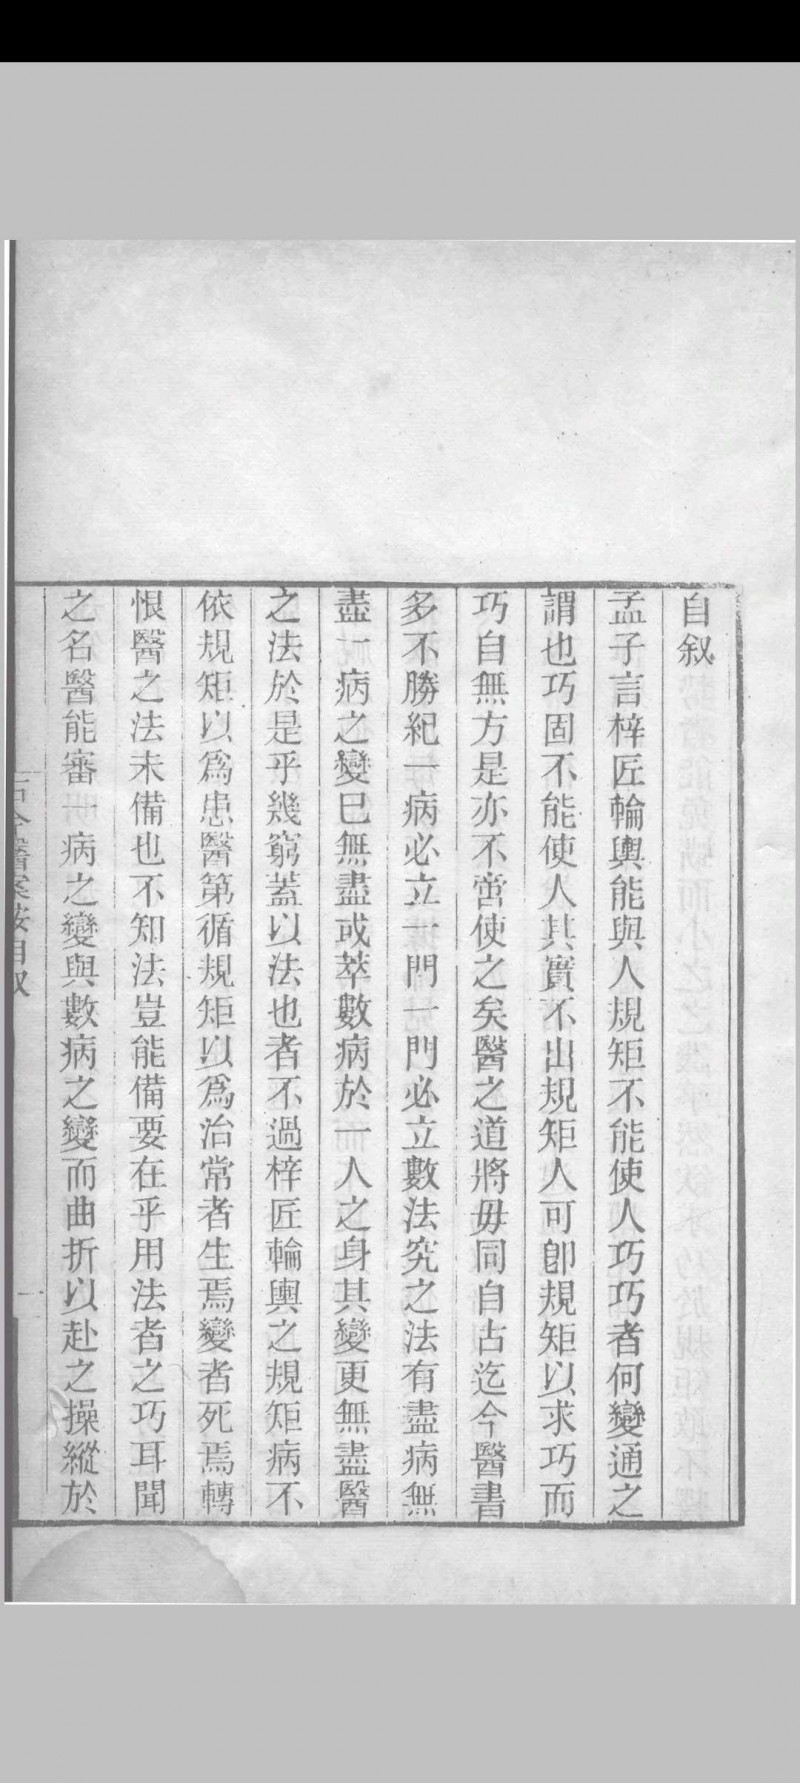 自叙
孟子言梓匠輪輿能與人規矩不能使人巧巧者何變通之
謂也巧固不能使人其實不出規矩人可卽規矩以求巧而
巧自無方是亦不啻使之矣醫之道將毋同自古迄今醫書
多不勝紀一病必立一門一門必立數法究之法有盡病無
盡一病之變已無盡或萃數病於一人之身其變更無盡醫
之法於是乎幾窮蓋以法也者不過梓匠輪輿之規矩病不
依規矩以爲患醫第循規矩以爲治常者生焉變者死焉轉
恨醫之法未備也不知法豈能備要在乎用法者之巧耳聞
之名醫能審一病之變與數病之變而曲折以赴之操縱於
古今醫案按自叙
一